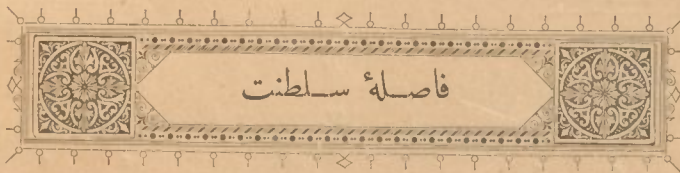 فاصلهٔ سلطنت